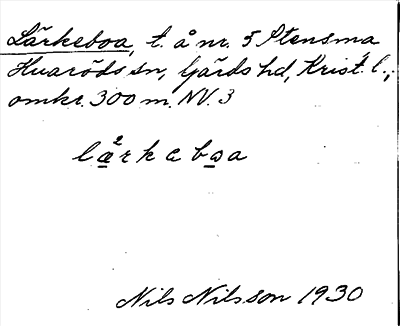 Lärkeboa, t. å nr. 5 Stensma,
Huaröds sn, Gärds hd, Krist. l.,
omkr. 300 m. NV. 3
Nils Nilsson 1930